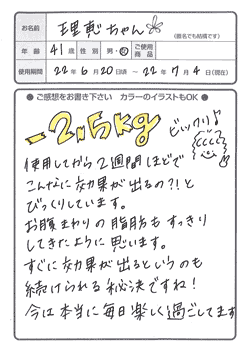 お名前 理恵ちゃん
(匿名でも結構です)
年齢 41歳 性別 男・女 ご使用商品
使用期間 22年6月20日頃 ～ 22年7月4日(現在)
● ご感想をお書き下さい カラーのイラストもOK ●
-2.5kg
ビックリ♪
使用してから2週間ほどで
こんなに効果が出るの?!と
びっくりしています。
お腹まわりの脂肪もすっきり
してきたように思います。
すぐに効果が出るというのも
続けられる秘決ですね!
今は本当に毎日楽しく過ごしてます